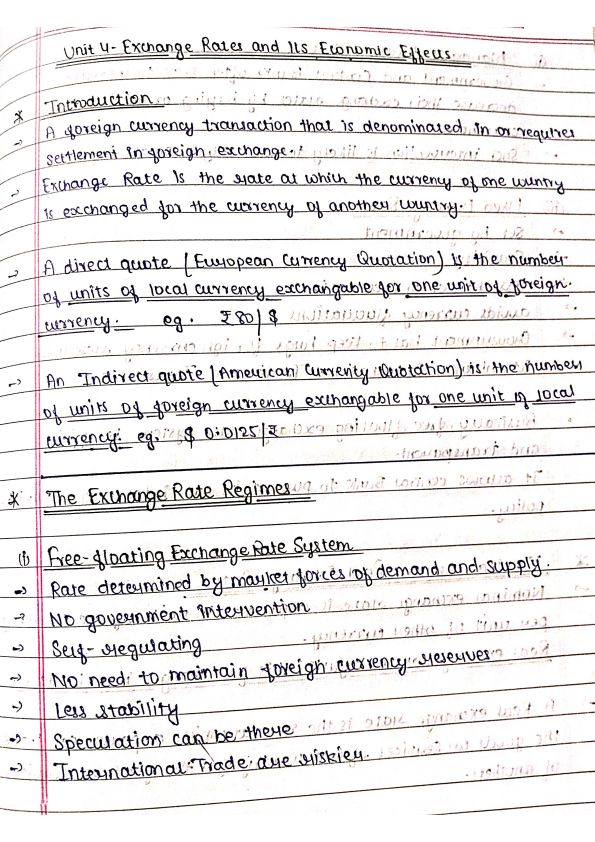 Unit 4 - Exchange Rates and Its Economic Effects
* Introduction
→ A foreign currency transaction that is denominated in or requires
settlement in foreign exchange.
→ Exchange Rate is the rate at which the currency of one country
is exchanged for the currency of another country.
→ A direct quote (European Currency Quotation) is the number
of units of local currency exchangable for one unit of foreign
currency. eg. ₹80/$
→ An Indirect quote (American Currency Quotation) is the number
of units of foreign currency exchangable for one unit of local
currency. eg. $ 0.0125/₹
* The Exchange Rate Regimes
(i) Free-floating Exchange Rate System
→ Rate determined by market forces of demand and supply.
→ No government intervention
→ Self-regulating
→ No need to maintain foreign currency reserves
→ Less stability
→ Speculation can be there
→ International Trade are riskier.